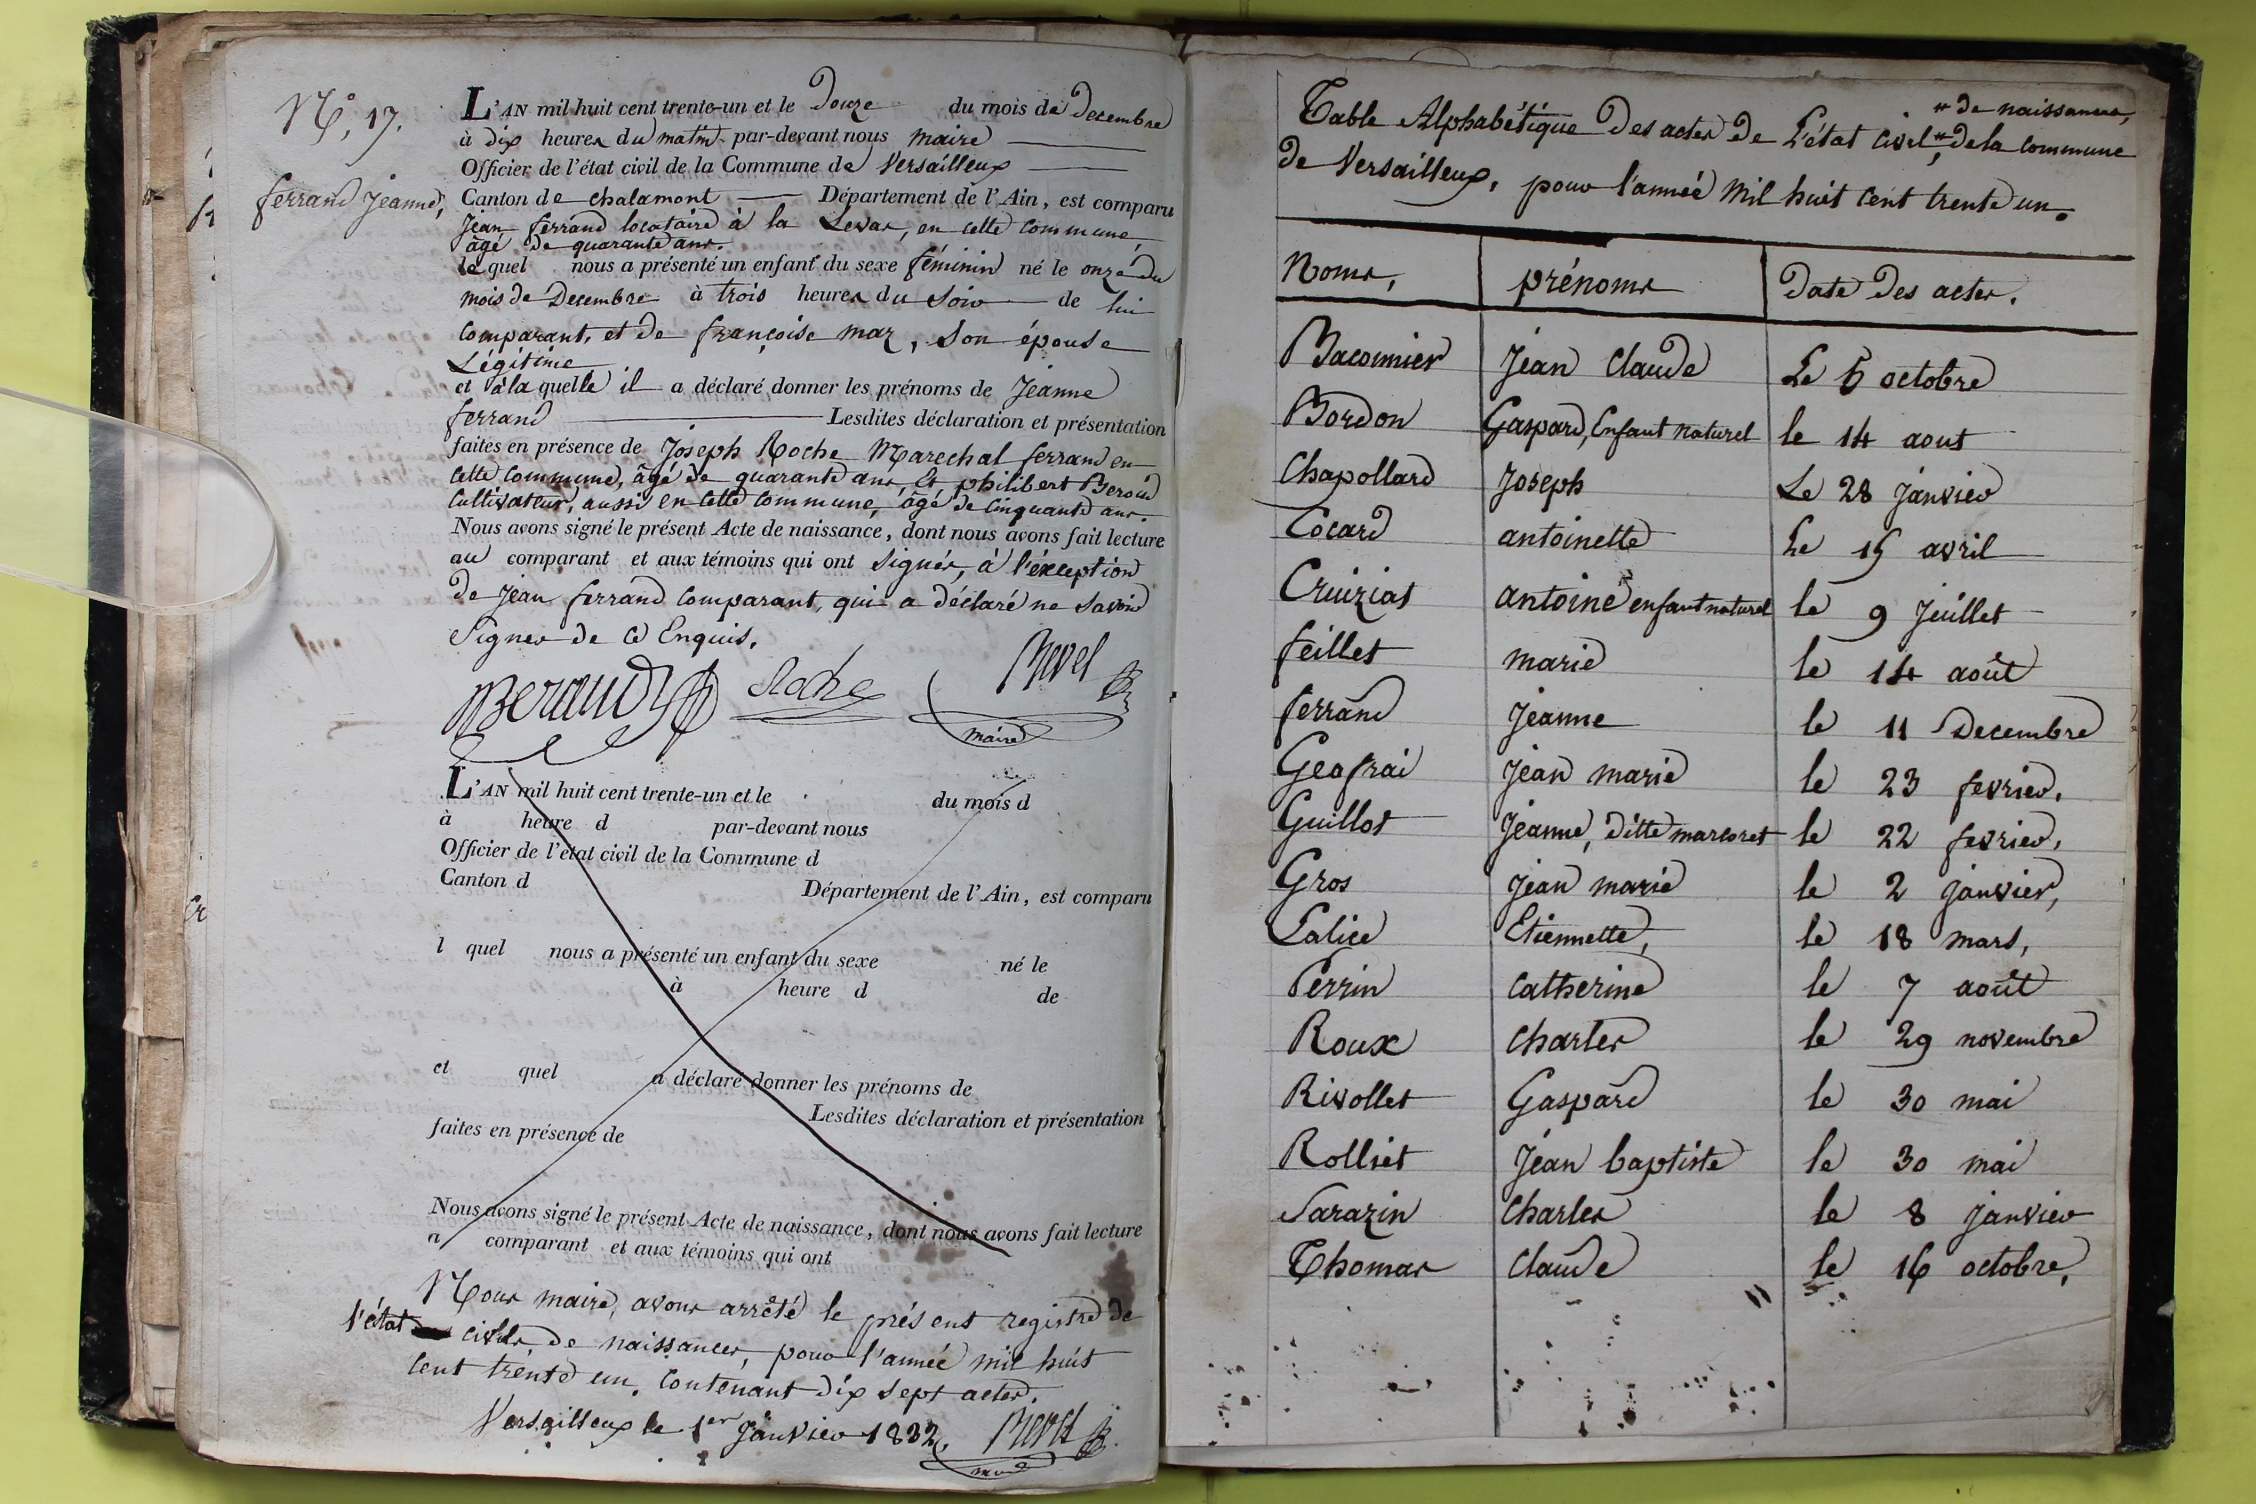 N.° 17.
ferrand Jeanne,
L'AN mil huit cent trente-un et le Douze du mois de Decembre
à dix heures du matin par-devant nous maire
Officier de l'état civil de la Commune de Versailleux
Canton de chalamont Département de l'Ain, est comparu
Jean ferrand locataire à la Levas, en cette commune,
âgé de quarante ans.
le quel nous a présenté un enfant du sexe féminin né le onze du
mois de Decembre à trois heures du soir de lui
comparant, et de françoise maz, son épouse
Légitime
et à la quelle il a déclaré donner les prénoms de Jeanne
ferrand Lesdites déclaration et présentation
faites en présence de Joseph Roche Marechal ferrand en
cette commune, âgé de quarante ans et philibert Beroud
Cultivateur, aussi en cette commune, âgé de cinquante ans.
Nous avons signé le présent Acte de naissance, dont nous avons fait lecture
au comparant et aux témoins qui ont signés, à l'éxception
de Jean ferrand comparant, qui a déclaré ne savoir
signer de ce Enquis.
Beraud Roche Revel
maire
L'AN mil huit cent trente-un et le du mois d
à heure d par-devant nous
Officier de l'état civil de la Commune d
Canton d Département de l'Ain, est comparu
l quel nous a présenté un enfant du sexe né le
à heure d de
et quel a déclaré donner les prénoms de
Lesdites déclaration et présentation
faites en présence de
Nous avons signé le présent Acte de naissance, dont nous avons fait lecture
a comparant et aux témoins qui ont
Nous maire, avons arrêté le présent registre de
l'état civile, de naissances, pour l'année mil huit
cent trente un, contenant dix sept actes.
Versailleux le 1er Janvier 1832. Revel
maire
Table Alphabétique Des actes de L'état civil, # de naissances, # de la commune
de Versailleux, pour l'année mil huit cent trente un.
Noms, prénoms Date des actes.
Baconnier Jean Claude Le 6 octobre
Bordon Gaspard, Enfant naturel le 14 aout
Chapolland Joseph Le 28 janvier
Cocard antoinette Le 15 avril
Cruiziat antoine enfant naturel le 9 Juillet
feillet marie le 14 août
ferrand Jeanne le 11 Decembre
Geofrai Jean marie le 23 fevrier.
Guillot Jeanne, ditte marcoret le 22 fevrier.
Gros Jean marie le 2 janvier,
Lalice Etiennette, le 18 mars,
Perrin Catherine le 7 août
Roux Charles le 29 novembre
Rivollet Gaspard le 30 mai
Rolliet Jean baptiste le 30 mai
Sarazin Charles le 8 janvier
Thomas Claude le 16 octobre.